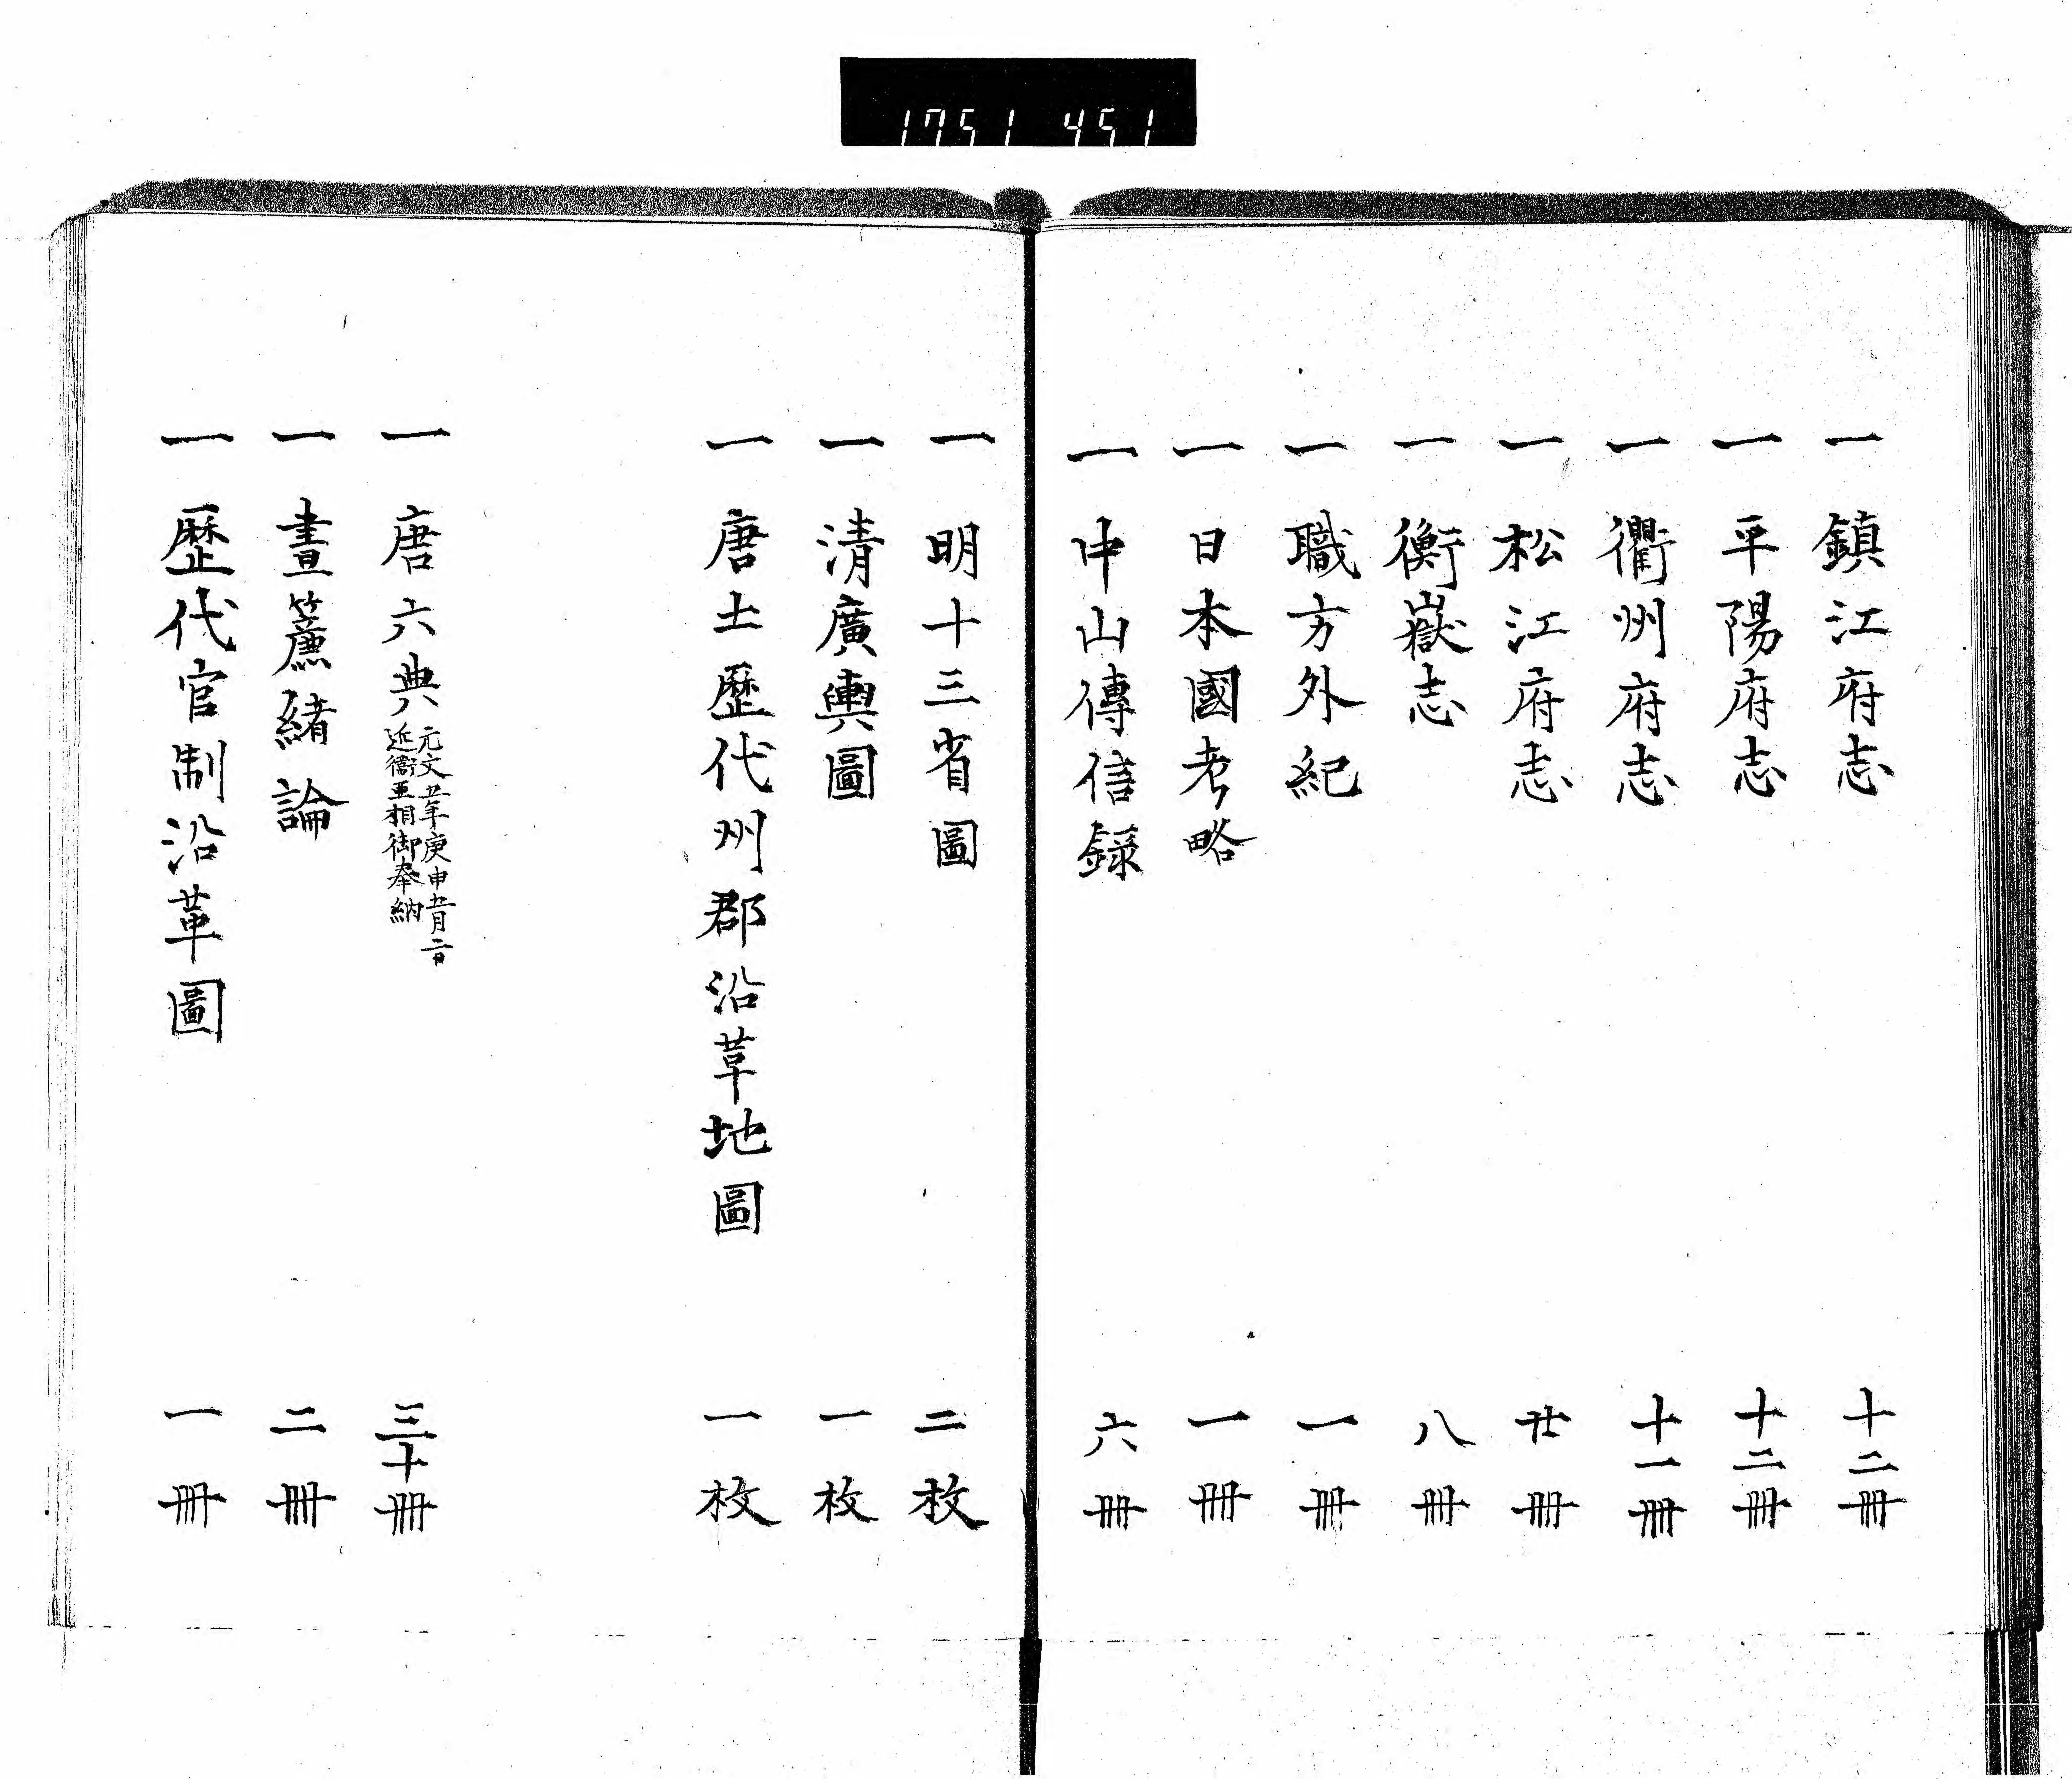 1751 451
一 鎮江府志 十二冊
一 平陽府志 十二冊
一 衢州府志 十一冊
一 松江府志 廿冊
一 衡嶽志 八冊
一 職方外紀 一冊
一 日本國考略 一冊
一 中山傳信録 六冊
一 明十三省圖 二枚
一 清廣輿圖 一枚
一 唐土歷代州郡沿革地圖 一枚
一 唐六典 元文五年庚申五月二日 近衞亜相御奉納 三十冊
一 晝簾緒論 二冊
一 歷代官制沿革圖 一冊